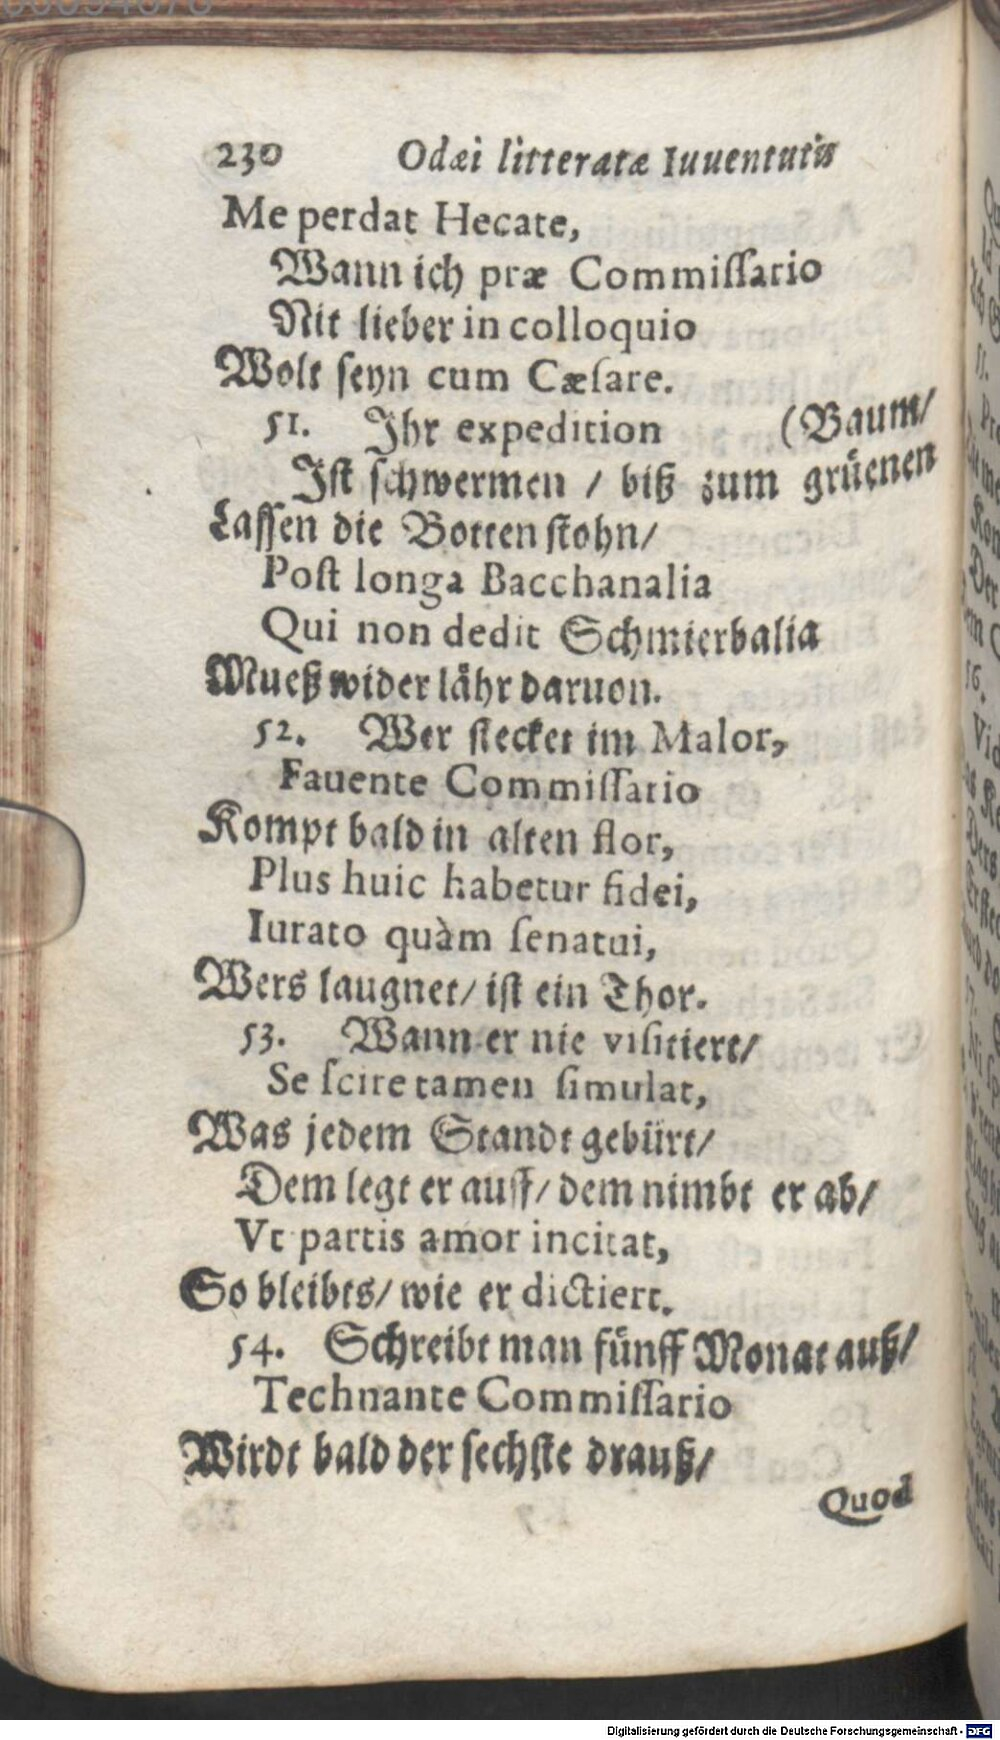 230 Odæi litteratæ Iuuentutis
Me perdat Hecate,
Wann ich præ Commiſſario
Nit lieber in colloquio
Wolt ſeyn cum Cæſare.
51. Ihr expedition (Baum/
Iſt ſchwermen / biß zum grüenen
Laſſen die Botten ſtohn/
Poſt longa Bacchanalia
Qui non dedit Schmierbalia
Mueß wider lähr daruon.
52. Wer ſtecket im Malor,
Fauente Commiſſario
Kompt bald in alten flor,
Plus huic habetur fidei,
Iurato quàm ſenatui,
Wers laugnet/ iſt ein Thor.
53. Wann er nie viſitiert/
Se ſcire tamen ſimulat,
Was jedem Standt gebürt/
Dem legt er auff/ dem nimbt er ab/
Vt partis amor incitat,
So bleibts/ wie er dictiert.
54. Schreibt man fünff Monat auß/
Technante Commiſſario
Wirdt bald der ſechſte drauß/
Quod
Digitalisierung gefördert durch die Deutsche Forschungsgemeinschaft - DFG